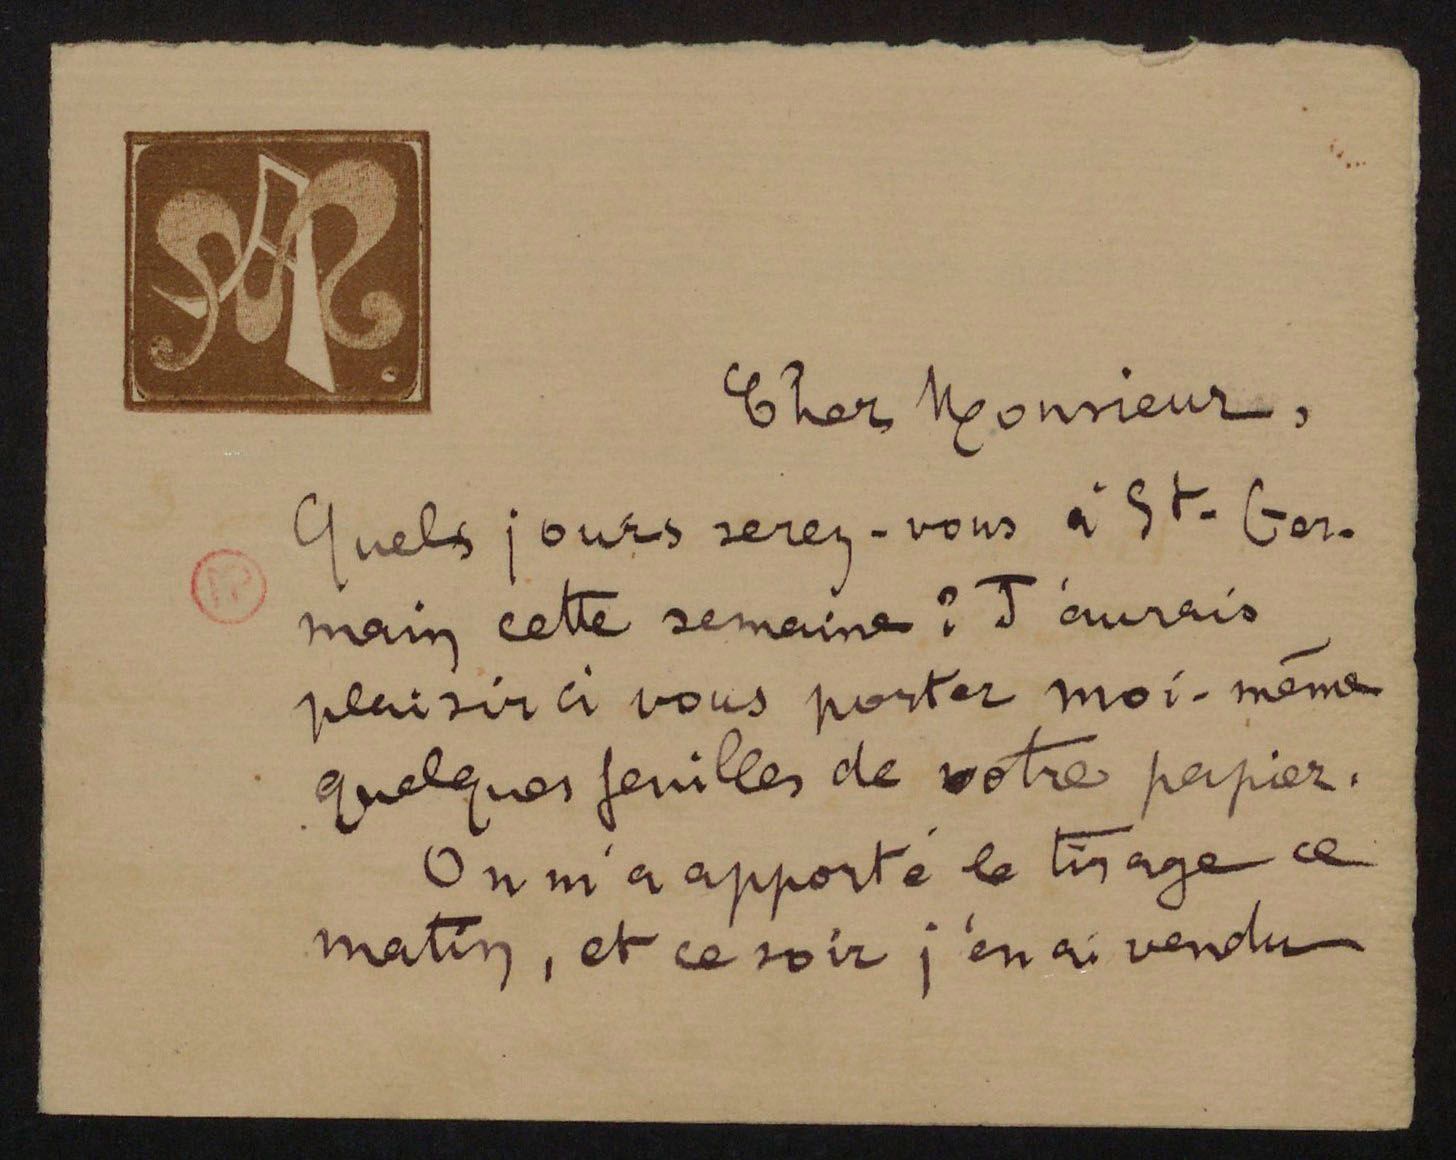 Cher Monsieur,
Quels jours serez-vous à St-Ger-
main cette semaine ? J'aurais
plaisir à vous porter moi-même
quelques feuilles de votre papier.
On m'a apporté le tirage ce
matin, et ce soir j'en ai vendu